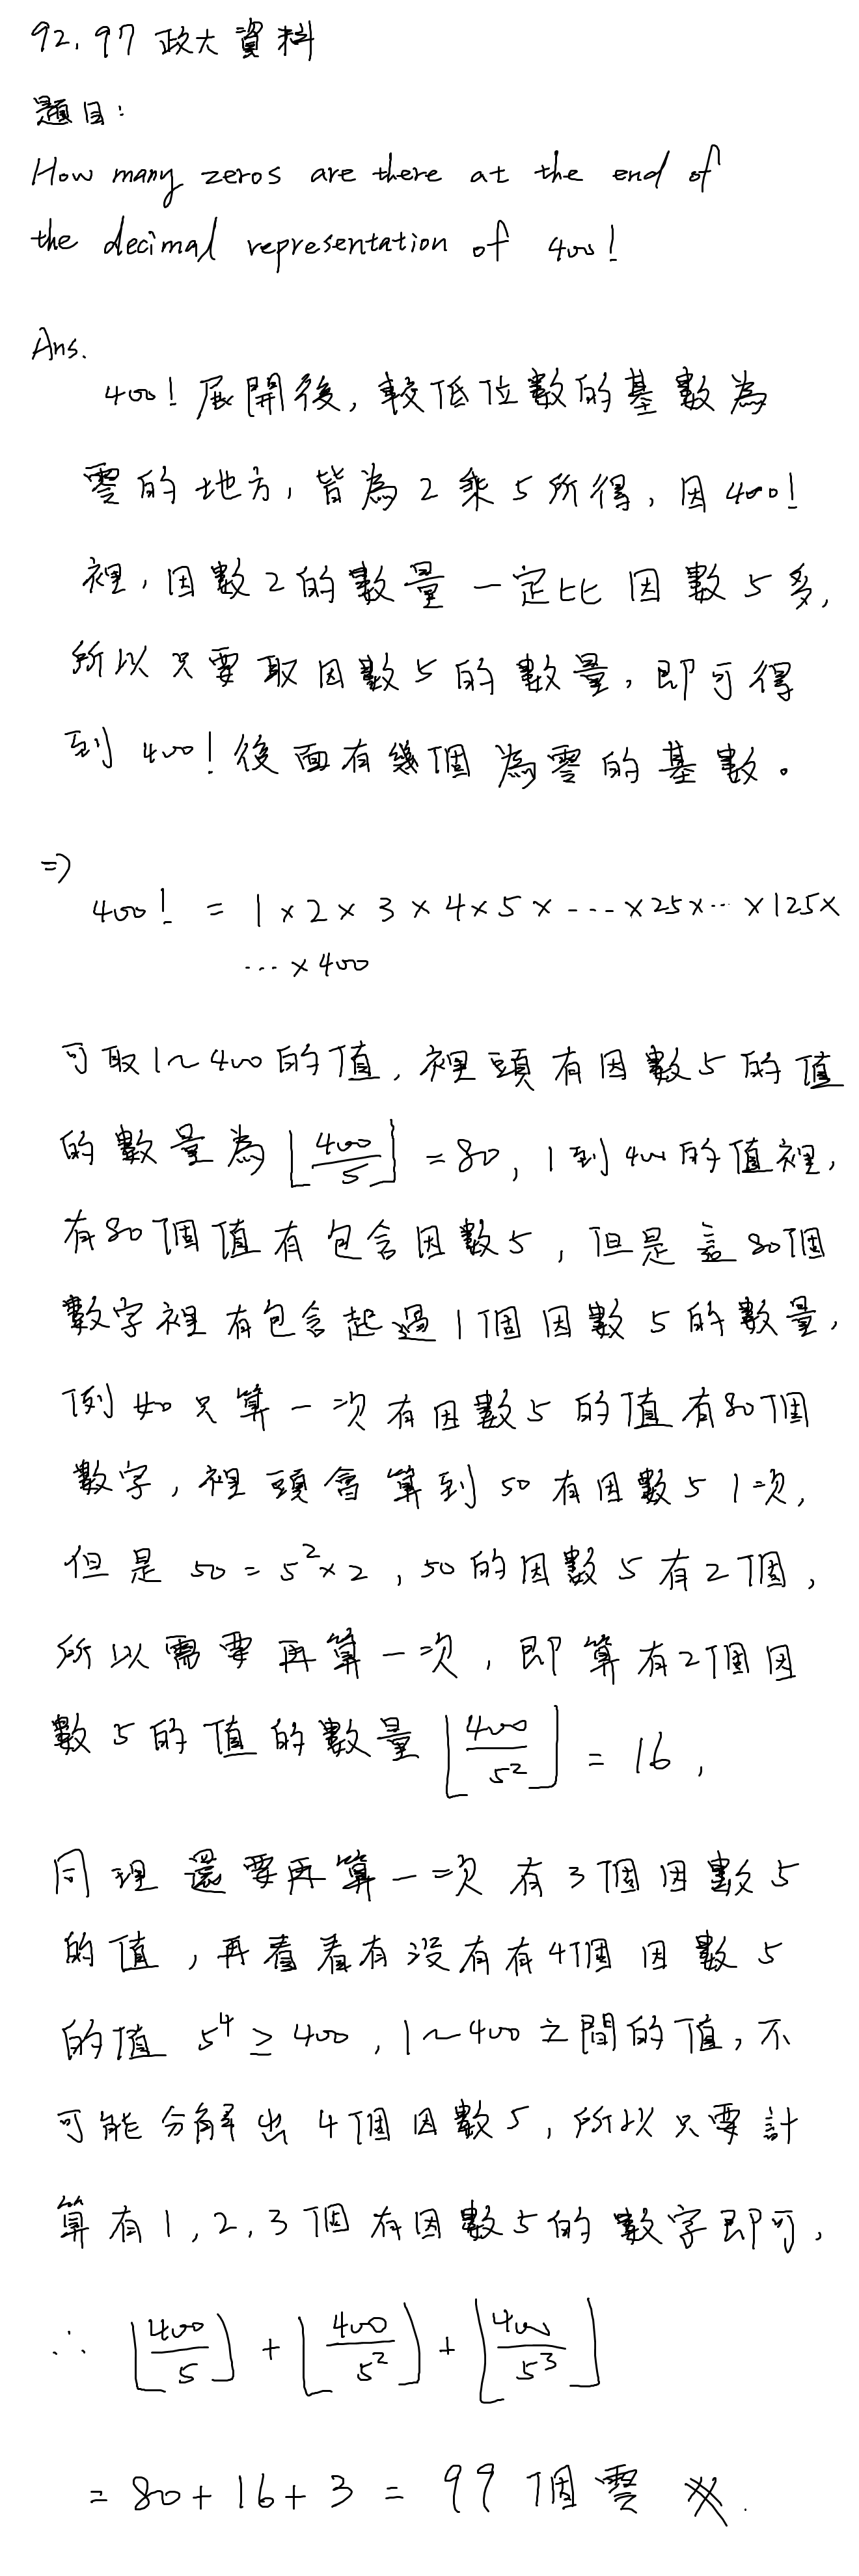 92, 97 政大資料
題目:
How many zeros are there at the end of
the decimal representation of 400!
Ans.
400! 展開後, 較低位數的基數為
零的地方, 皆為2乘5所得, 因400!
裡, 因數2的數量一定比因數5多,
所以只要取因數5的數量, 即可得
到400!後面有幾個為零的基數。
⇒
400! = 1 × 2 × 3 × 4 × 5 × ---- × 25 × ... × 125 ×
... × 400
可取1~400的值, 裡頭有因數5的值
的數量為 ⌊400/5⌋ = 80, 1到400的值裡,
有80個值有包含因數5, 但是這80個
數字裡有包含超過1個因數5的數量,
例如只算一次有因數5的值有80個
數字, 裡頭會算到50有因數5 1次,
但是 50 = 5² × 2, 50的因數5有2個,
所以需要再算一次, 即算有2個因
數5的值的數量 ⌊400/5²⌋ = 16,
同理還要再算一次有3個因數5
的值, 再看看有沒有有4個因數5
的值 5⁴ ≥ 400, 1~400之間的值, 不
可能分解出4個因數5, 所以只要計
算有1, 2, 3個有因數5的數字即可,
∴ ⌊400/5⌋ + ⌊400/5²⌋ + ⌊400/5³⌋
= 80 + 16 + 3 = 99 個零 ※.